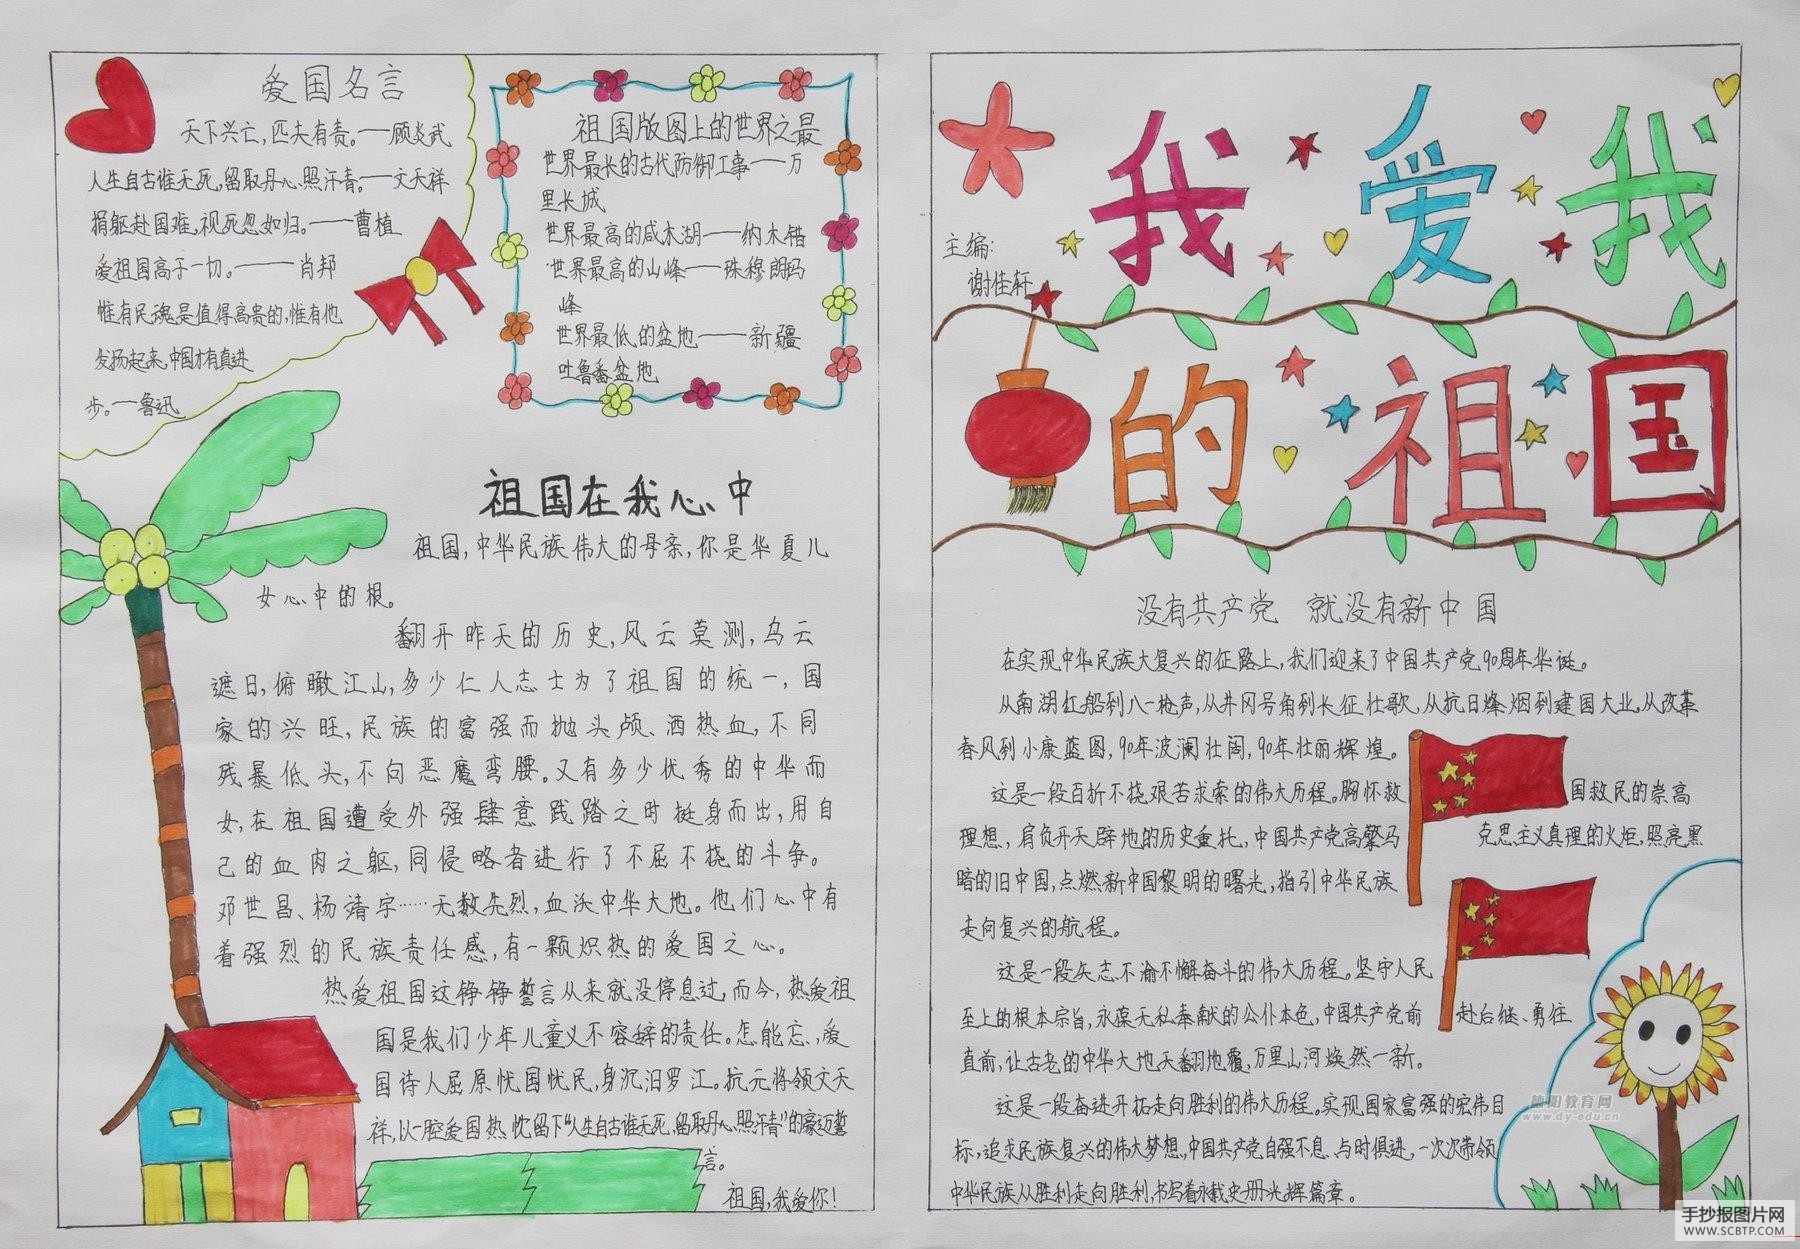 爱国名言
天下兴亡,匹夫有责。——顾炎武
人生自古谁无死,留取丹心照汗青。——文天祥
捐躯赴国难,视死忽如归。——曹植
爱祖国高于一切。——肖邦
惟有民魂是值得高贵的,惟有他
发扬起来,中国才有真进
步。—鲁迅
祖国版图上的世界之最
世界最长的古代防御工事——万
里长城
世界最高的咸水湖——纳木错
世界最高的山峰——珠穆朗玛
峰
世界最低的盆地——新疆
吐鲁番盆地
祖国在我心中
祖国,中华民族伟大的母亲,你是华夏儿
女心中的根。
翻开昨天的历史,风云莫测,乌云
遮日,俯瞰江山,多少仁人志士为了祖国的统一,国
家的兴旺,民族的富强而抛头颅、洒热血,不同
残暴低头,不向恶魔弯腰。又有多少优秀的中华而
女,在祖国遭受外强肆意践踏之时挺身而出,用自
己的血肉之躯,同侵略者进行了不屈不挠的斗争。
邓世昌、杨靖宇……无数先烈,血沃中华大地。他们心中有
着强烈的民族责任感,有一颗炽热的爱国之心。
热爱祖国这铮铮誓言从来就没停息过,而今,热爱祖
国是我们少年儿童义不容辞的责任。怎能忘,爱
国诗人屈原忧国忧民,身沉汨罗江。抗元将领文天
祥,以一腔爱国热忱留下“人生自古谁无死,留取丹心照汗青”的豪迈誓
言。
祖国,我爱你!
我爱我
主编:
谢佳轩
的祖国
没有共产党 就没有新中国
在实现中华民族大复兴的征路上,我们迎来了中国共产党90周年华诞。
从南湖红船到八一枪声,从井冈号角到长征壮歌,从抗日烽烟到建国大业,从改革
春风到小康蓝图,90年波澜壮阔,90年壮丽辉煌。
这是一段百折不挠艰苦求索的伟大历程。胸怀救国救民的崇高
理想,肩负开天辟地的历史重托,中国共产党高擎马克思主义真理的火炬,照亮黑
暗的旧中国,点燃新中国黎明的曙光,指引中华民族
走向复兴的航程。
这是一段矢志不渝不懈奋斗的伟大历程。坚守人民
至上的根本宗旨,永葆无私奉献的公仆本色,中国共产党前赴后继、勇往
直前,让古老的中华大地天翻地覆,万里山河焕然一新。
这是一段奋进开拓走向胜利的伟大历程。实现国家富强的宏伟目
标,追求民族复兴的伟大梦想,中国共产党自强不息、与时俱进,一次次带领
中华民族从胜利走向胜利,书写着永载史册光辉篇章。
德阳教育网
www.dy-edu.cn
手抄报图片网
WWW.SCBTP.COM